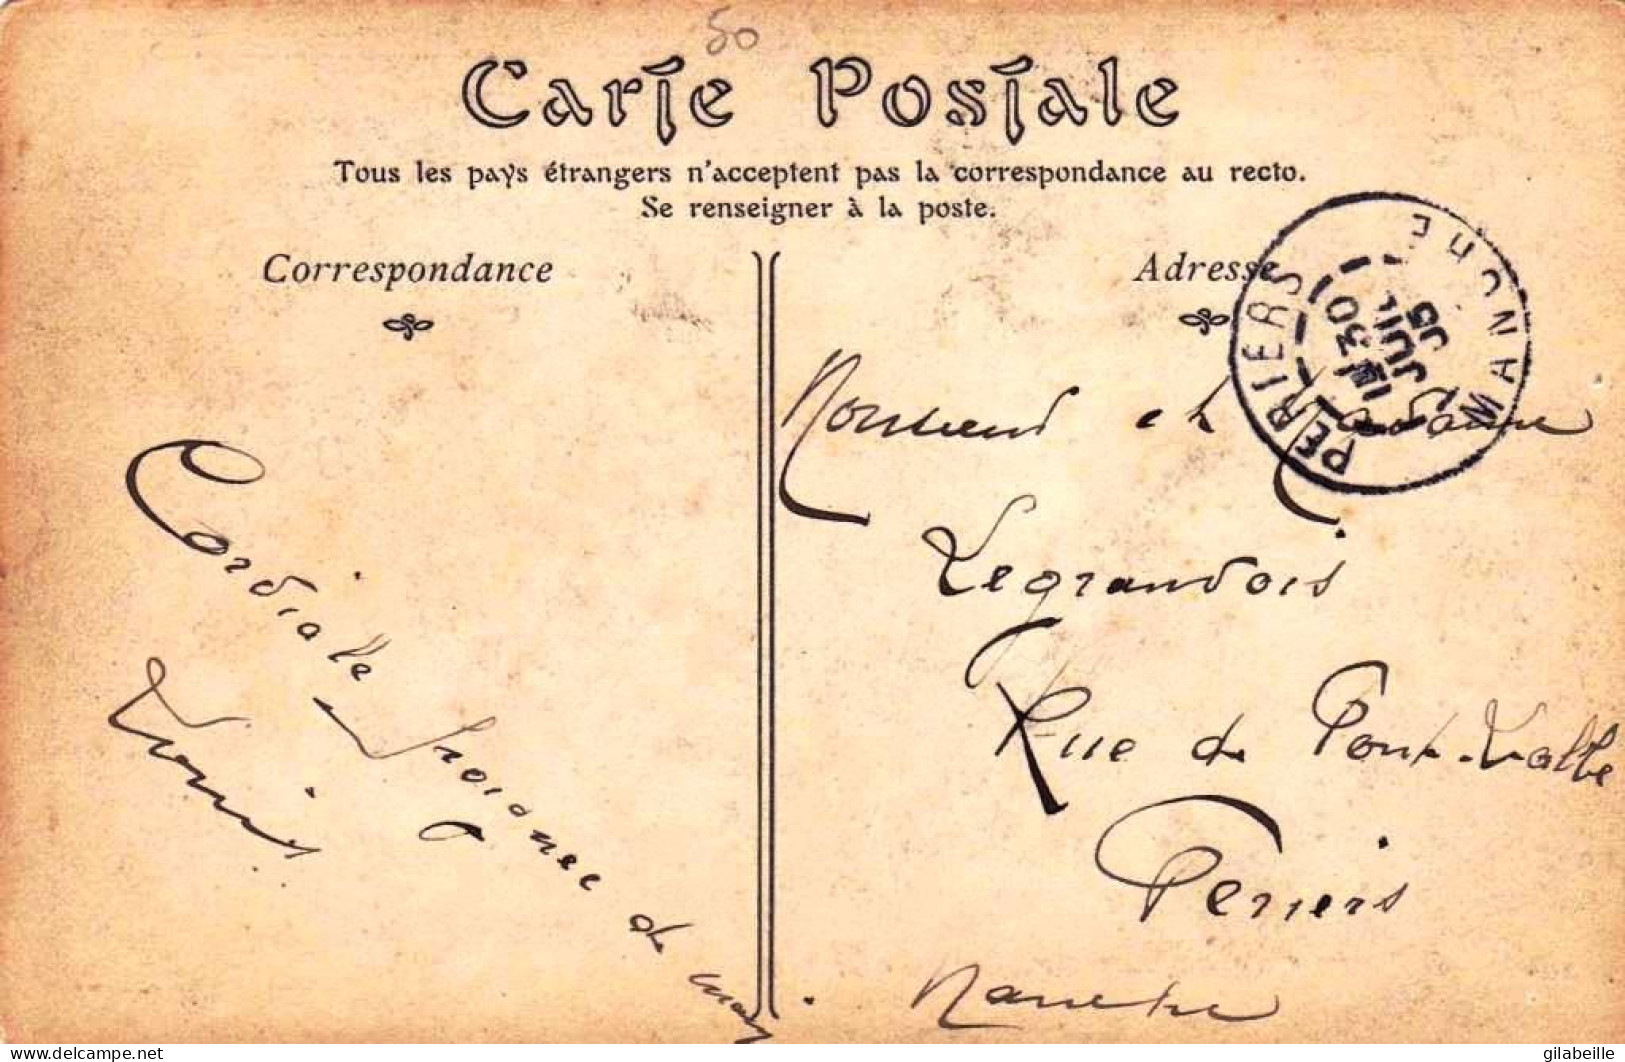 50
Carte Postale
Tous les pays étrangers n'acceptent pas la correspondance au recto.
Se renseigner à la poste.
Correspondance
Adresse
PERIERS
MANCHE
30
JUIL
05
Monsieur et Madame
Legrandois
Rue de Pont-l'abbé
Periers
Manche
Cordiale poignée de
main
Louis
delcampe.net
gilabeille